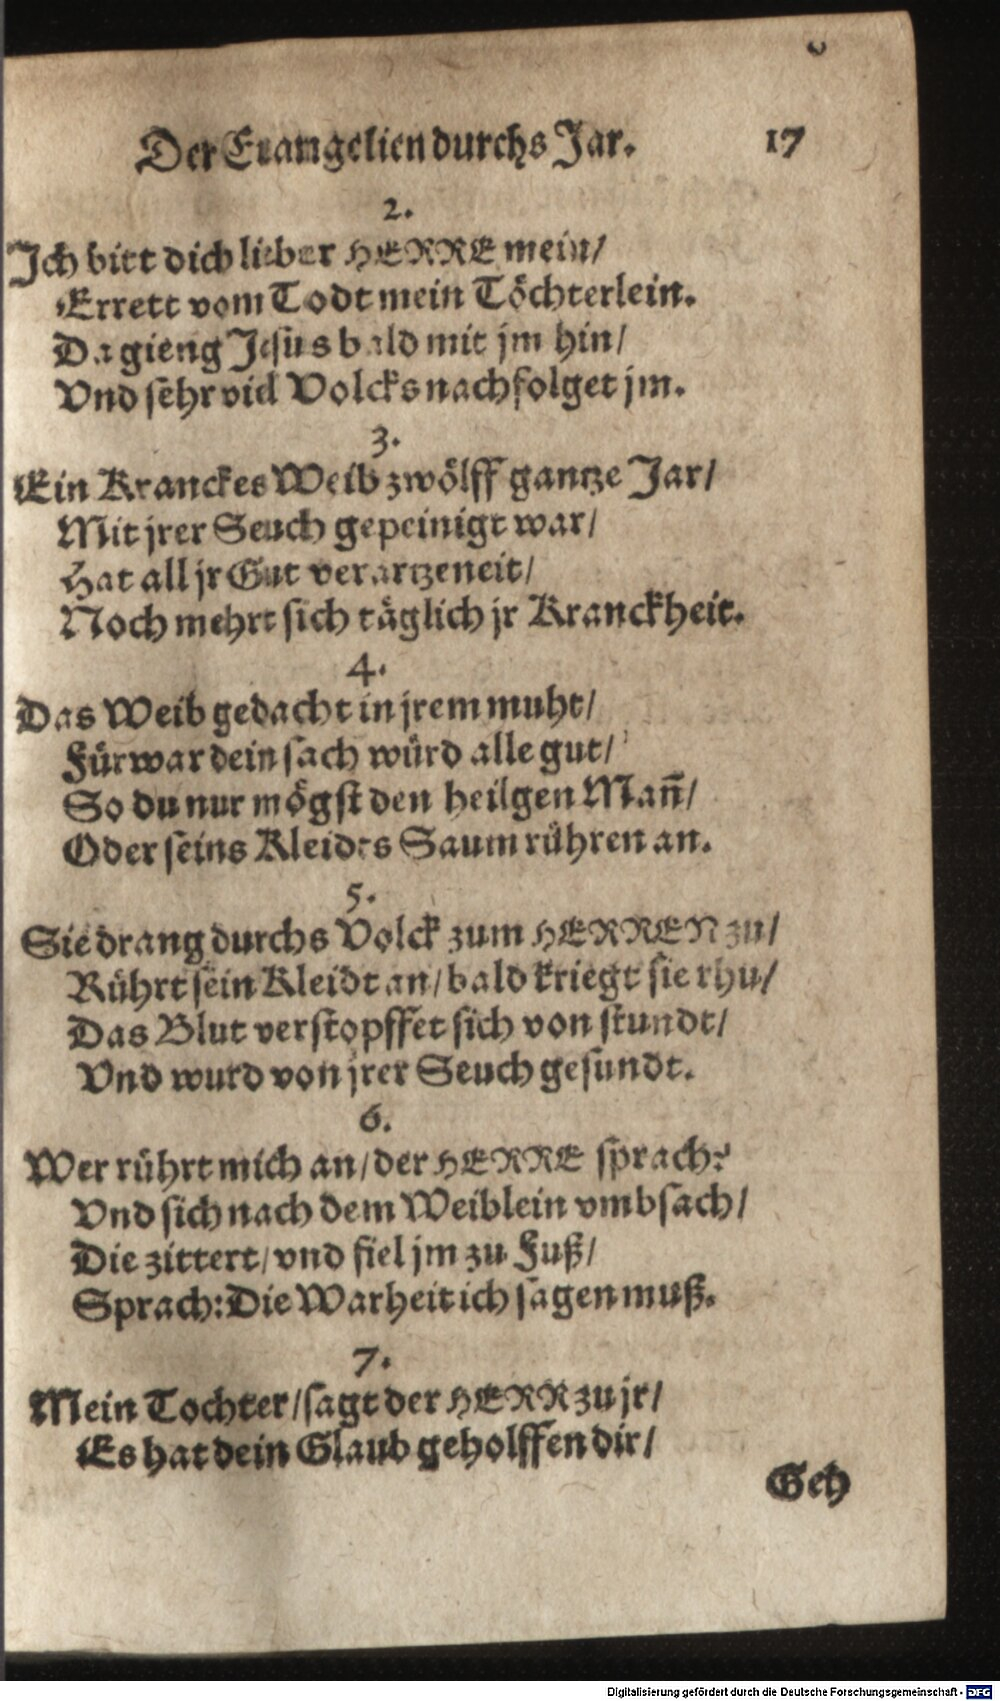 Der Euangelien durchs Jar. 17
2.
Jch bitt dich lieber HERRE mein/
Errett vom Todt mein Töchterlein.
Da gieng Jesus bald mit jm hin/
Vnd sehr viel Volcks nachfolget jm.
3.
Ein Kranckes Weib zwölff gantze Jar/
Mit jrer Seuch gepeinigt war/
Hat all jr Gut verartzeneit/
Noch mehrt sich täglich jr Kranckheit.
4.
Das Weib gedacht in jrem muht/
Fürwar dein sach würd alle gut/
So du nur mögst den heilgen Man̄/
Oder seins Kleides Saum rühren an.
5.
Sie drang durchs Volck zum HERREN zu/
Rührt sein Kleidt an/ bald kriegt sie rhu/
Das Blut verstopffet sich von stundt/
Vnd wurd von jrer Seuch gesundt.
6.
Wer rührt mich an/ der HERRE sprach?
Vnd sich nach dem Weiblein vmbsach/
Die zittert/ vnd fiel jm zu Fuß/
Sprach: Die Warheit ich sagen muß.
7.
Mein Tochter/ sagt der HERR zu jr/
Es hat dein Glaub geholffen dir/
Geh
Digitalisierung gefördert durch die Deutsche Forschungsgemeinschaft - DFG